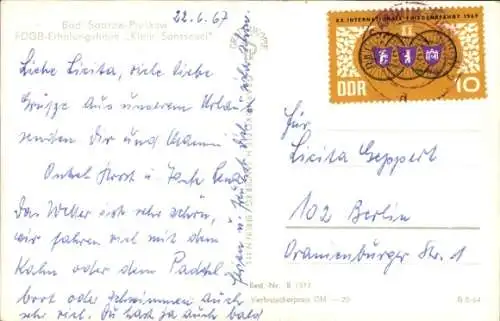 22.6.67
Bad Saarow-Pieskow
FDGB-Erholungsheim „Klein Sanssouci"
Liebe Licita, viele liebe
Grüsse aus unserem Urlaub
senden Dir und Mammi
Onkel Horst u. Tante
Das Wetter ist sehr schön,
wir fahren viel mit dem
Kahn oder dem Paddel
bort oder schwimmen auch
sehr viel. Du hast ja auch bald
Ferien u. freust Dich
XX. INTERNATIONALE FRIEDENSFAHRT 1967
DDR 10
Für
Licita Geppert
102 Berlin
Oranienburger Str. 1
Best.-Nr. B
Verbraucherpreis DM —,20